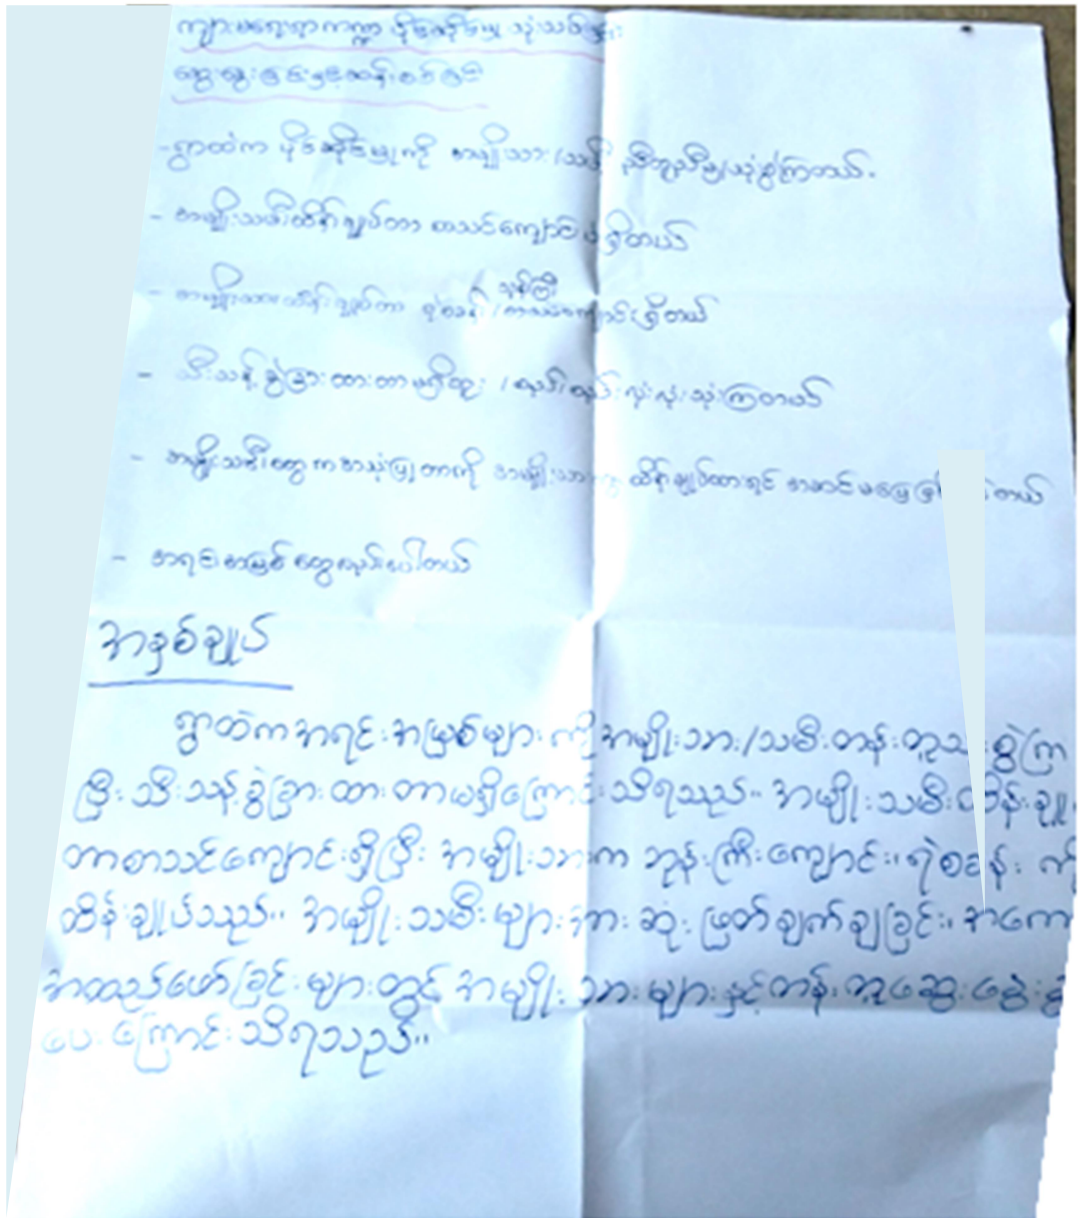 ကျား၊မရေးရာကဏ္ဍ ပိုင်ဆိုင်မှု သုံးသပ်
ဆွေးနွေးခြင်းနှင့်ဆန်းစစ်ခြင်း
-ရွာထဲက ပိုင်ဆိုင်မှုကို အမျိုးသား/သမီး ညီတူညီမျှသုံးစွဲကြတယ်.
- အမျိုးသမီးထိန်းချုပ်တာ စာသင်ကျောင်းပဲရှိတယ်
- အမျိုးသားထိန်းချုပ်တာ ရဲစခန်း/ ကျောင်းရှိတယ်
- သီးသန့်ခွဲခြားထားတာမရှိဘူး / လုံးလုံးသုံးကြတယ်
- အမျိုးသမီးတွေကအသုံးပြုတာကို အမျိုးသား ထိန်းချုပ်ထားရင် အဆင်မပြေ တယ်
- အရင်းအမြစ်တွေလည်းပေါတယ်
အနှစ်ချုပ်
ရွာထဲကအရင်းအမြစ်များကိုအမျိုးသား/သမီးတန်းတူသုံးစွဲကြ
ပြီးသီးသန့်ခွဲခြားထားတာမရှိကြောင်းသိရသည်။ အမျိုးသမီးထိန်းချုပ်
တာစာသင်ကျောင်းရှိပြီး အမျိုးသားက ဘုန်းကြီးကျောင်း၊ ရဲစခန်း ကို
ထိန်းချုပ်သည်။ အမျိုးသမီးများအား ဆုံးဖြတ်ချက်ချခြင်း၊ အကော
အထည်ဖော်ခြင်းများတွင် အမျိုးသားများနှင့်တန်းတူဆွေးနွေးခွ
ပေးကြောင်းသိရသည်။